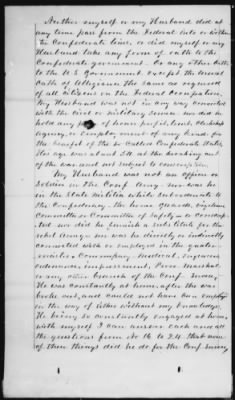 Neither myself or my Husband did at
any time pass from the Federal into or within
the Confederate lines, or did myself or my
Husband take any form of oath to the
Confederate government. Or any other oath
to the U S Government. except the usual
oath of allegiance, the same as required
of all citizens in the Federal Occupation,
My Husband was not in any way connected
with the civil or military service. nor did he
hold any place of honor profit, trust, clerkship
agency, or employment of any kind. for
the benefit of the so Called Confederate States
His age was about 50. at the breaking out
of the war and not subject to conscription.
My Husband was not an officer or
soldier in the Conf Army. nor was he
in the State Militia while subordinate to
the Confederacy. the home guards, vigilance
Committee or Committee of Safety or conscript
nor did he furnish a substitute for the
rebel Army. nor was he directly or indirectly
connected with or employed in the quarter-
masters Commissary. medical. engineers
ordnance, impressment, Provo Marshal
or any other branch of the Conf. Service,
He was constantly at home, after the war
broke out, and could not have been employed
in the way of either without my knowledge.
He being so constantly engaged at home,
with myself I can answer each and all
the questions from No 16 to 24. that none
of these things did he do for the Conf Service